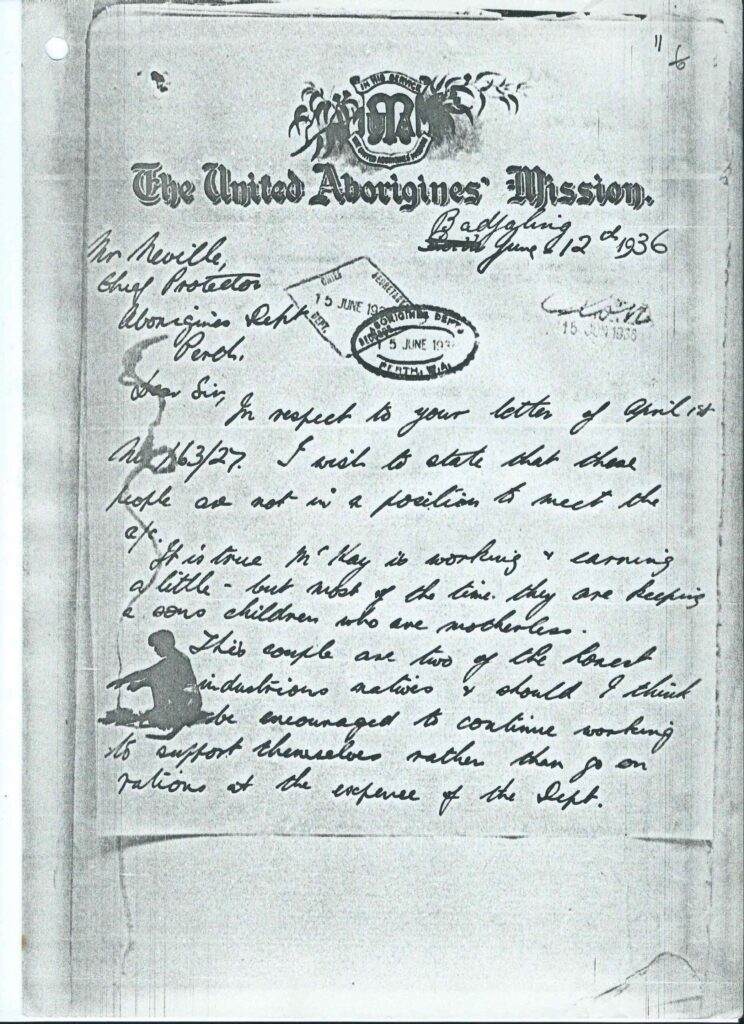 11
6
IN HIS SERVICE
UNITED ABORIGINES MISSION
The United Aborigines' Mission.
Badjaling
June 12th 1936
Mr Neville,
Chief Protector
Aborigines Dept
Perth.
CHIEF SECRETARY'S
15 JUNE 193
DEPT.
ABORIGINES DEPT.
15 JUNE 193
PERTH, W.A.
15 JUN 1936
Dear Sir,
In respect to your letter of April 1st
No 163/27. I wish to state that these
people are not in a position to meet the
a/c.
It is true McKay is working & earning
a little - but most of the time. they are keeping
a sons children who are motherless.
This couple are two of the honest
industrious natives & should I think
be encouraged to continue working
to support themselves rather than go on
rations at the expence of the Dept.